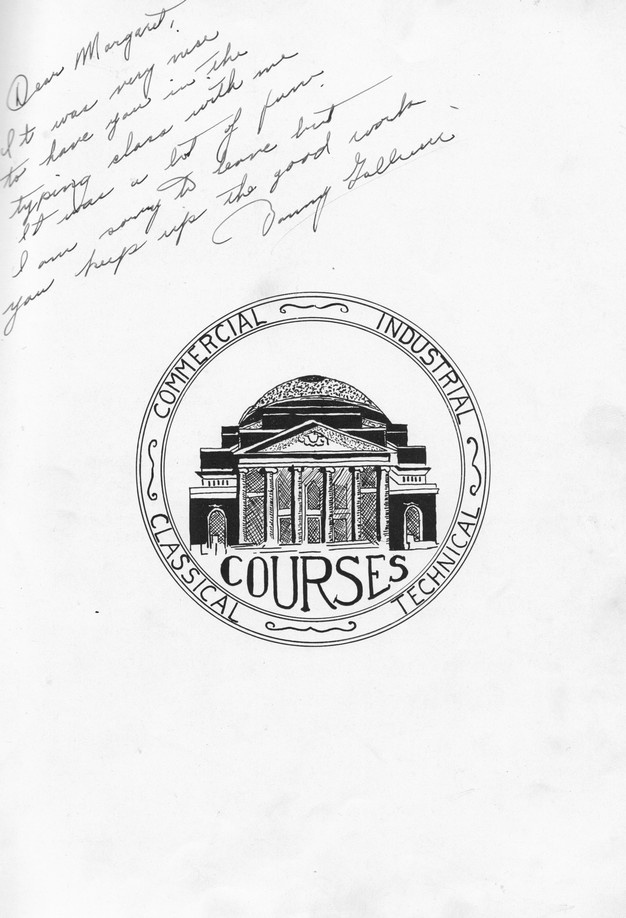 Dear Margaret,
It was very nice
to have you in the
typing class with me
It was a lot of fun.
I am sorry to leave but
you keep up the good work.
COMMERCIAL
INDUSTRIAL
CLASSICAL
TECHNICAL
COURSES